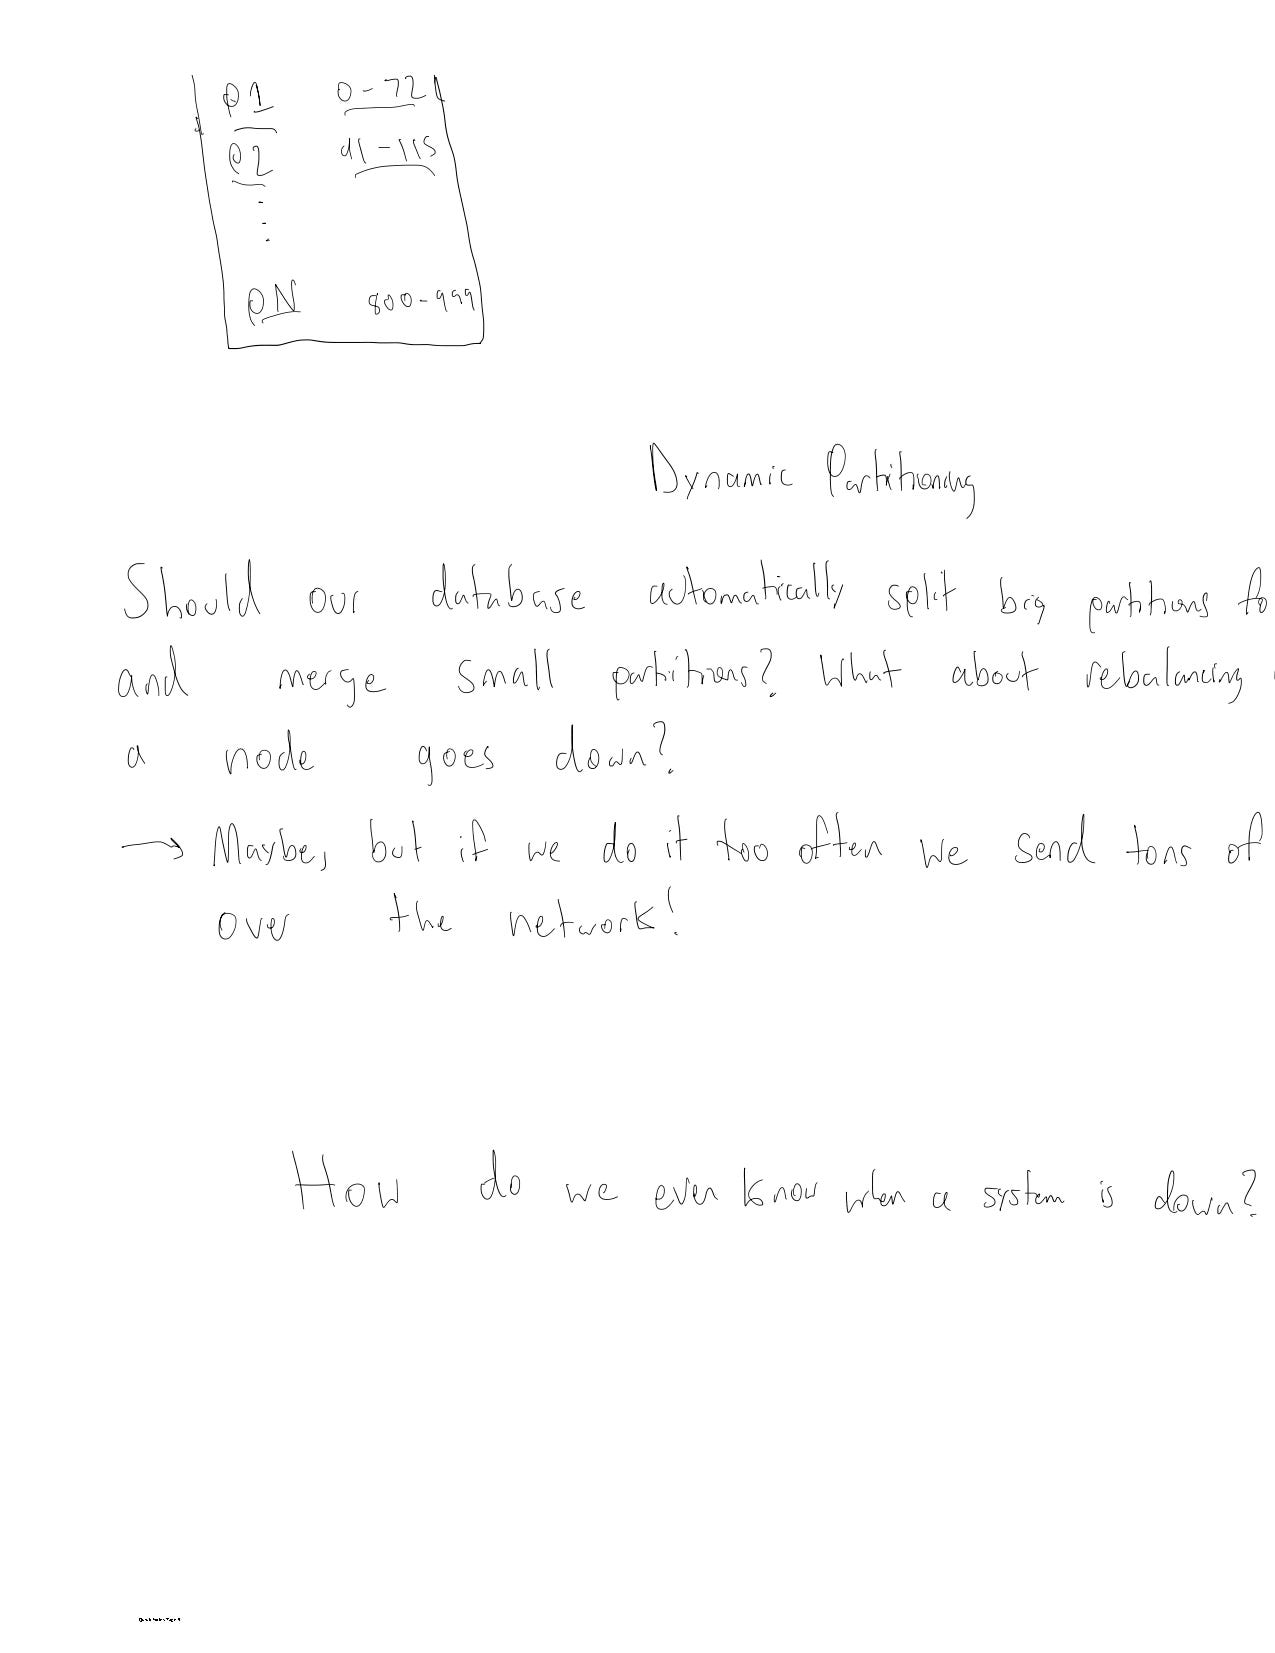 P1 0-72
P2 91-115
PN 800-999
Dynamic Partitioning
Should our database automatically split big partitions
and merge small partitions? What about rebalancing
a node goes down?
→ Maybe, but if we do it too often we send tons of
over the network!
How do we even know when a system is down?